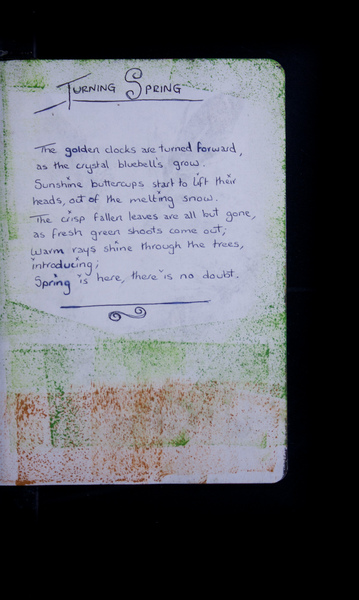 Turning Spring
The golden clocks are turned forward,
as the crystal bluebells grow.
Sunshine buttercups start to lift their
heads, out of the melting snow.
The crisp fallen leaves are all but gone,
as fresh green shoots come out;
Warm rays shine through the trees,
introducing;
Spring is here, there is no doubt.